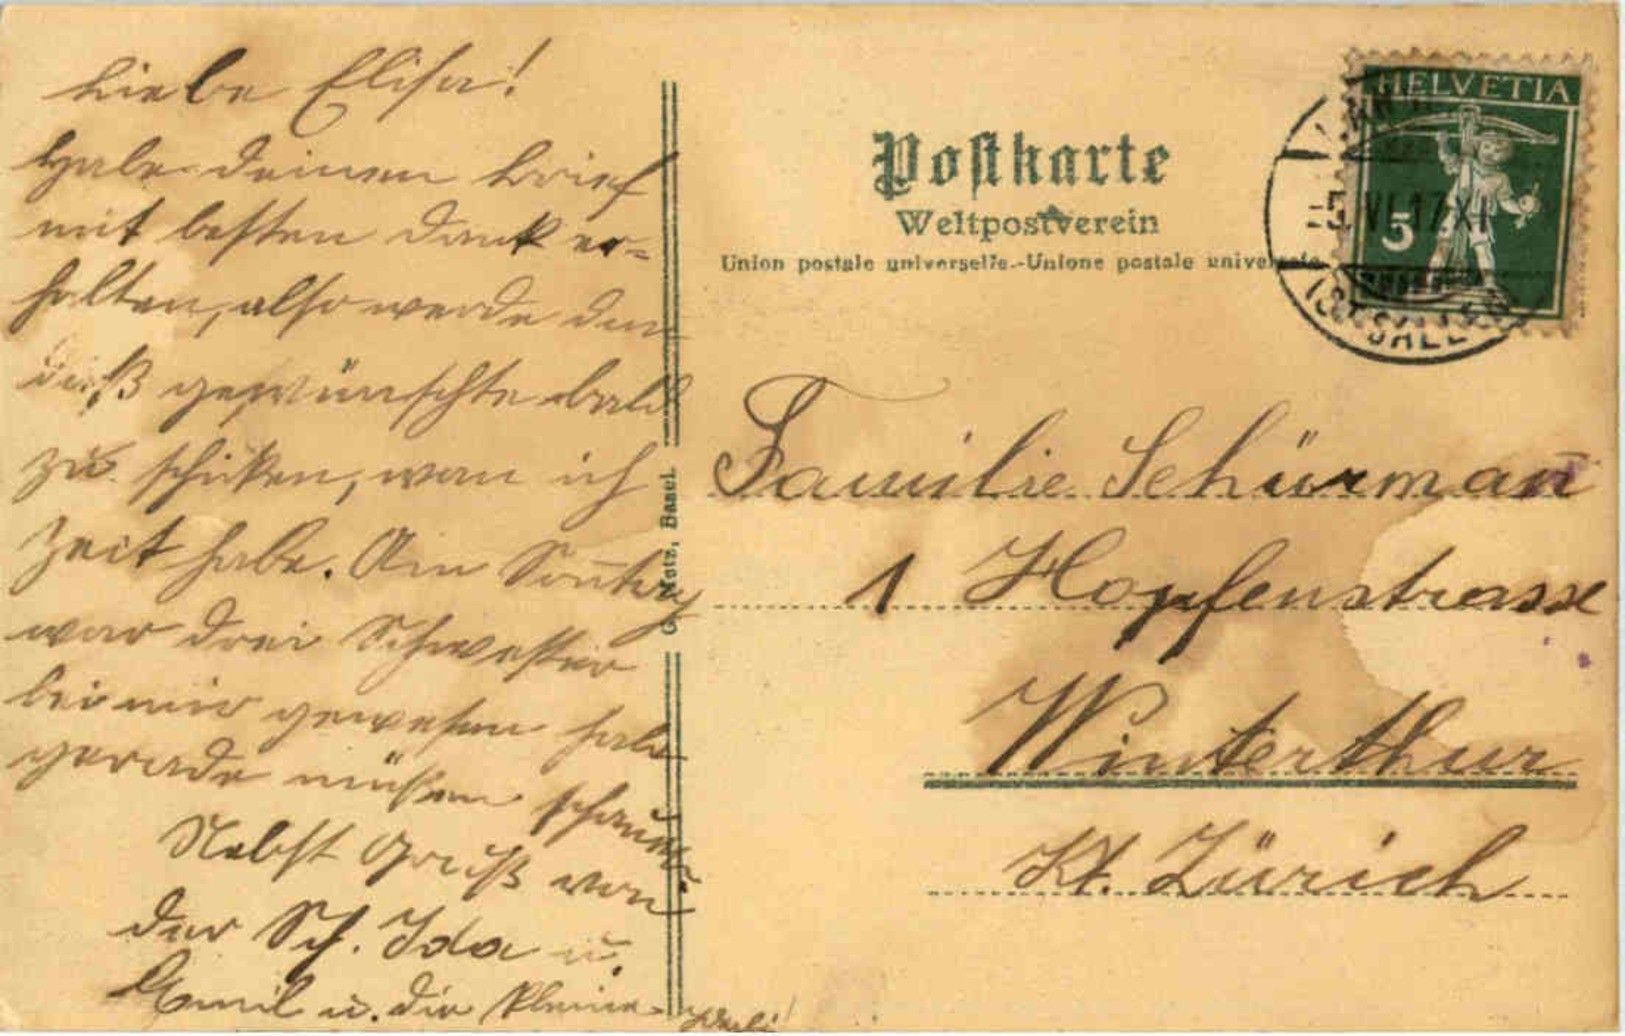 Liebe Elisa!
Habe deinen Brief
mit besten Dank er-
halten, also werde dan
gewünschte bald
zu schiken, wan ich
Zeit habe. Am Son̄tag
war drei Schwester
bei mir gewesen habe
gerade müssen schauen
Nebst Gruß von
der Sch. Ida u.
Emil u. die kleine
Postkarte
Weltpostverein
Union postale universelle.-Unione postale universale
HELVETIA
5
-5.VI.17.XI
Basel.
Familie Schürman̄
1 Hopfenstrasse
Winterthur
Kt. Zürich